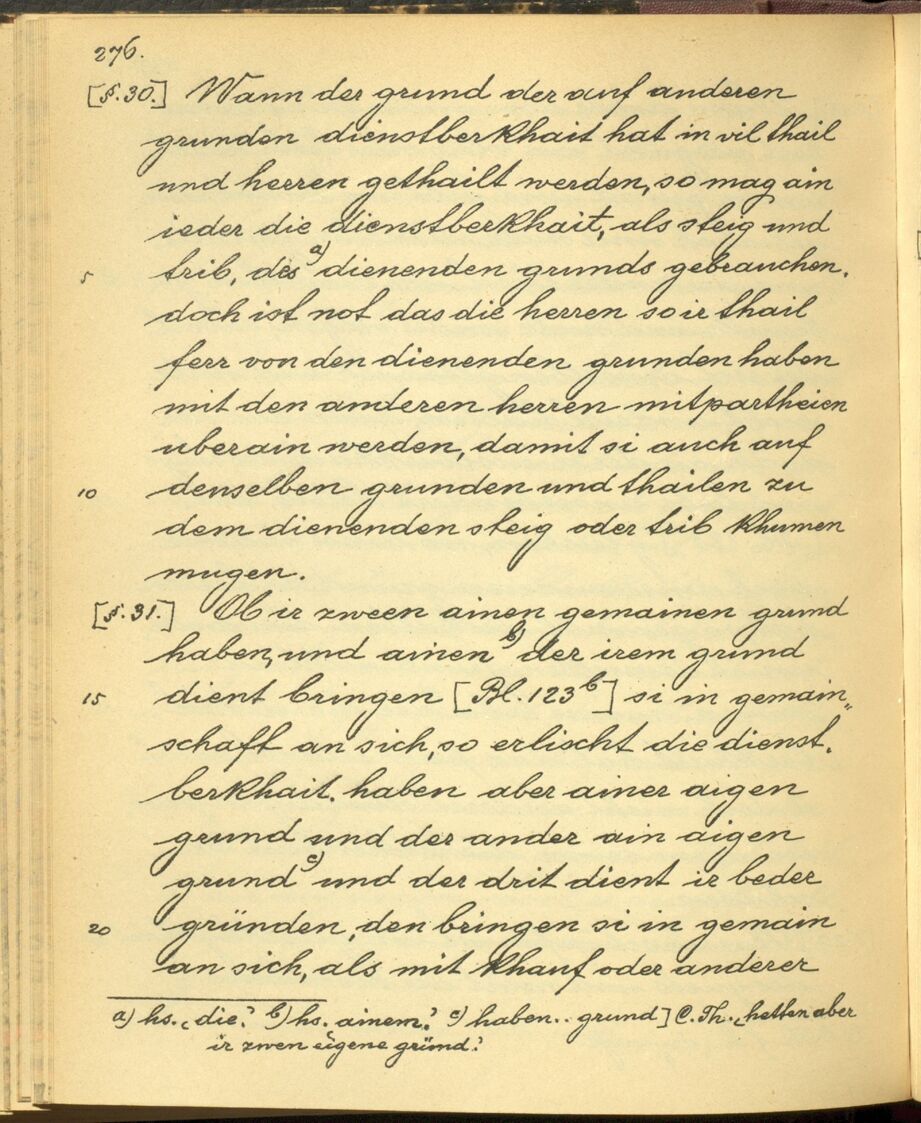 276.
[§.30.] Wann der grund der auf anderen
grunden dienstberkhait hat in vil thail
und herren gethailt werden, so mag ain
ieder die dienstberkhait, als steig und
5 trib, des a) dienenden grunds gebrauchen.
doch ist not das die herren so ir thail
ferr von den dienenden grunden haben
mit den anderen herren mitpartheien
uberain werden, damit si auch auf
10 denselben grunden und thailen zu
dem dienenden steig oder trib khumen
mugen.
[§.31.] Ob ir zween ainen gemainen grund
haben, und ainen b) der irem grund
15 dient bringen [Bl. 123b] si in gemain„
schaft an sich, so erlischt die dienst.
berkhait. haben aber ainer aigen
grund und der ander ain aigen
grund c) und der drit dient ir beder
20 gründen, den bringen si in gemain
an sich, als mit khauf oder anderer
a) hs. ‚die.' b) hs. ainem.' c) haben.. grund] C. Th. ‚hetten aber
ir zwen eigene gründ.'